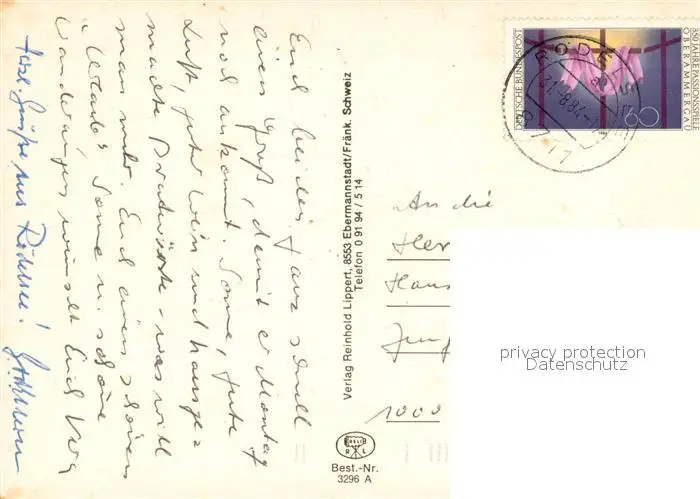 Euch beiden ganz schnell
einen Gruß, damit er Montag
noch ankommt. Sonne, gute
Luft, guter Wein und hausge=
machte Bratwürste - was will
man mehr. Euch einen schönen
Urlaub, Sonne u. schöne
Wanderungen wünscht Euch
Herzl. Grüße aus Rödelsee!
Verlag Reinhold Lippert, 8553 Ebermannstadt/Fränk. Schweiz
Telefon 0 91 94 / 5 14
Best.-Nr.
3296 A
DEUTSCHE BUNDESPOST
350 JAHRE PASSIONSSPIELE
OBERAMMERGAU
60
RÖDELS
31.-8.84
8711
An die
Her
Hans
Jung
1000
privacy protection
Datenschutz